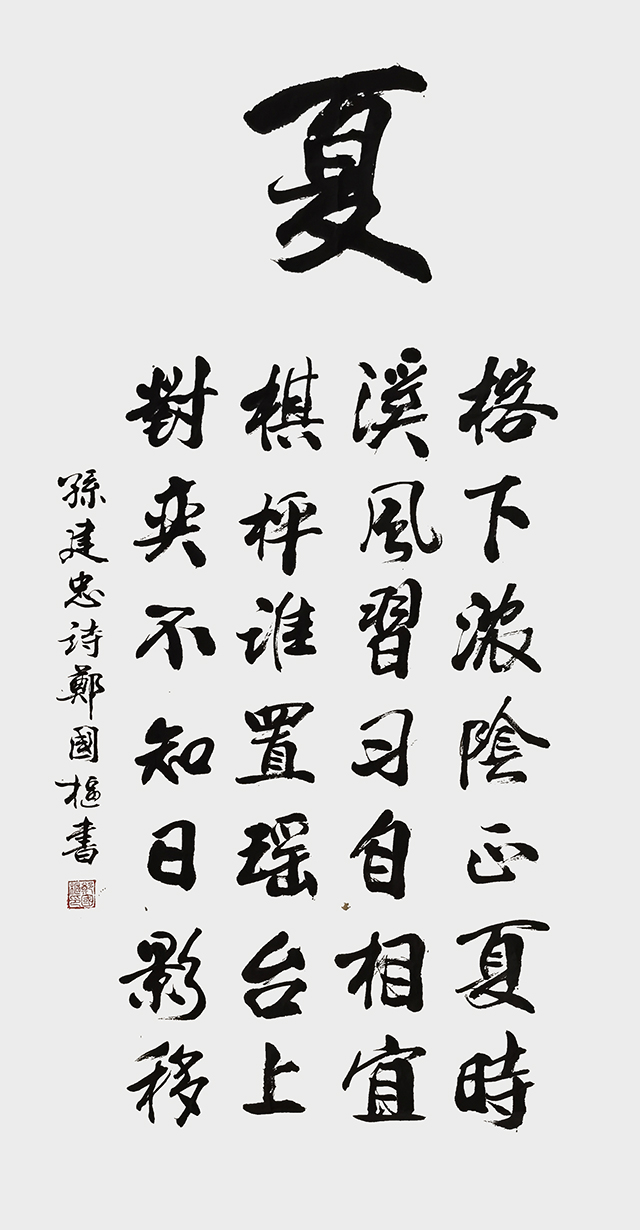 夏
榕下浓陰正夏時
溪風習习自相宜
棋枰谁置瑶台上
對奕不知日影移
孫建忠诗鄭國樞書